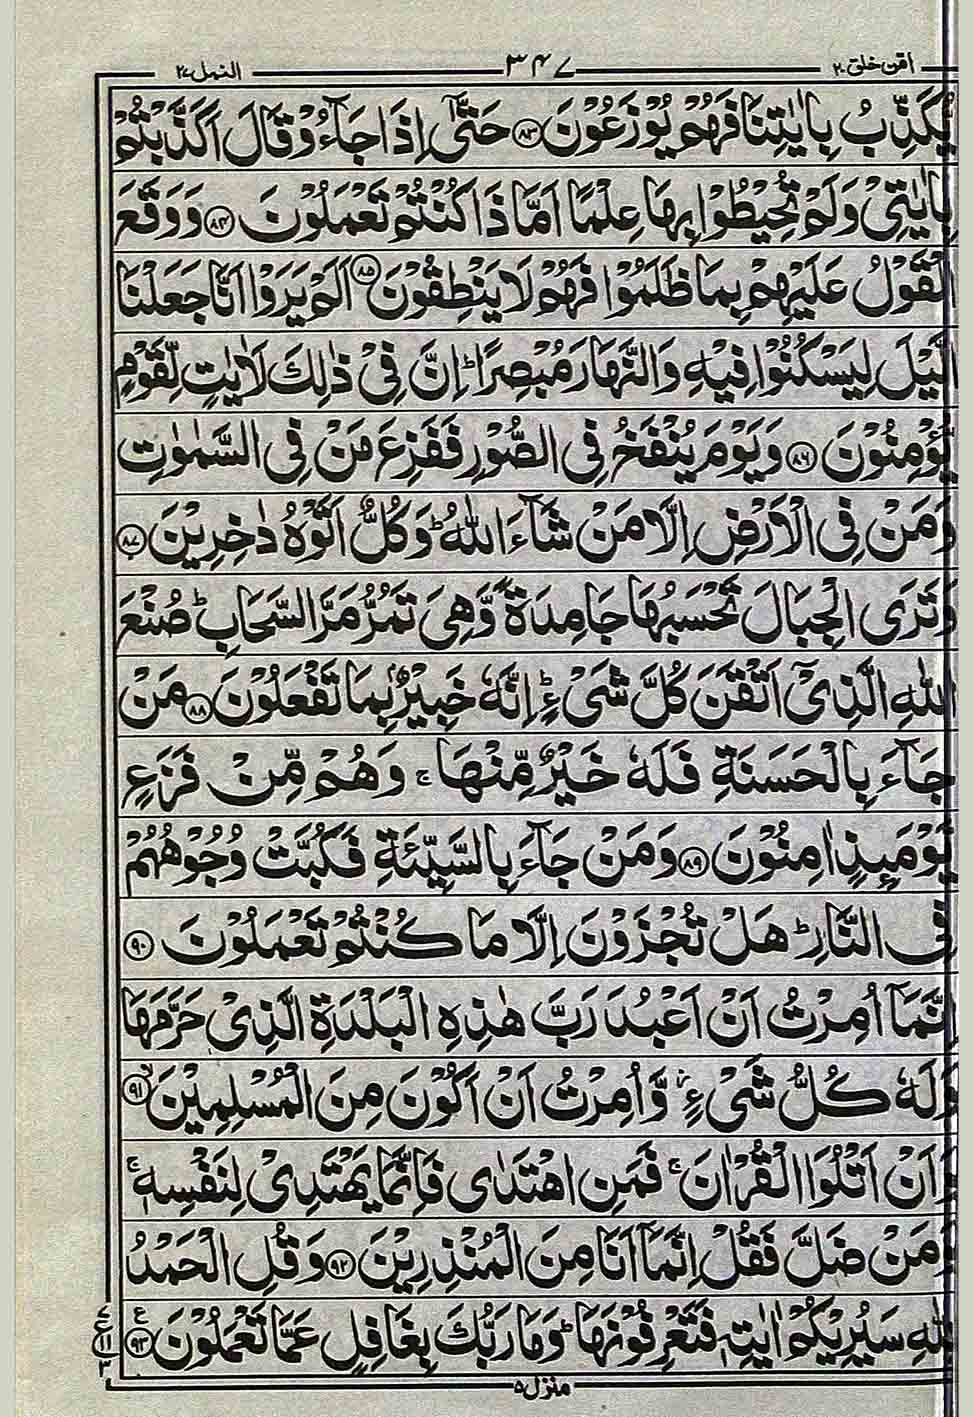 اَمَّنْ خلق ٢٠ ٣٤٧ النمل ٢٧
يُّكَذِّبُ بِاٰيٰتِنَا فَهُمْ يُوْزَعُوْنَ ﴿٨٣﴾ حَتّٰۤى اِذَا جَآءُوْ قَالَ اَكَذَّبْتُمْ
بِاٰيٰتِيْ وَلَمْ تُحِيْطُوْا بِهَا عِلْمًا اَمَّا ذَا كُنْتُمْ تَعْمَلُوْنَ ﴿٨٤﴾ وَوَقَعَ
الْقَوْلُ عَلَيْهِمْ بِمَا ظَلَمُوْا فَهُمْ لَا يَنْطِقُوْنَ ﴿٨٥﴾ اَلَمْ يَرَوْا اَنَّا جَعَلْنَا
الَّيْلَ لِيَسْكُنُوْا فِيْهِ وَالنَّهَارَ مُبْصِرًا ؕ اِنَّ فِيْ ذٰلِكَ لَاٰيٰتٍ لِّقَوْمٍ
يُّؤْمِنُوْنَ ﴿٨٦﴾ وَيَوْمَ يُنْفَخُ فِي الصُّوْرِ فَفَزِعَ مَنْ فِي السَّمٰوٰتِ
وَمَنْ فِي الْاَرْضِ اِلَّا مَنْ شَآءَ اللّٰهُ ؕ وَكُلٌّ اَتَوْهُ دٰخِرِيْنَ ﴿٨٧﴾
وَتَرَى الْجِبَالَ تَحْسَبُهَا جَامِدَةً وَّهِيَ تَمُرُّ مَرَّ السَّحَابِ ؕ صُنْعَ
اللّٰهِ الَّذِيْۤ اَتْقَنَ كُلَّ شَيْءٍ ؕ اِنَّهٗ خَبِيْرٌۢ بِمَا تَفْعَلُوْنَ ﴿٨٨﴾ مَنْ
جَآءَ بِالْحَسَنَةِ فَلَهٗ خَيْرٌ مِّنْهَا ۚ وَهُمْ مِّنْ فَزَعٍ
يَّوْمَئِذٍ اٰمِنُوْنَ ﴿٨٩﴾ وَمَنْ جَآءَ بِالسَّيِّئَةِ فَكُبَّتْ وُجُوْهُهُمْ
فِي النَّارِ ؕ هَلْ تُجْزَوْنَ اِلَّا مَا كُنْتُمْ تَعْمَلُوْنَ ﴿٩٠﴾
اِنَّمَاۤ اُمِرْتُ اَنْ اَعْبُدَ رَبَّ هٰذِهِ الْبَلْدَةِ الَّذِيْ حَرَّمَهَا
وَلَهٗ كُلُّ شَيْءٍ ؗ وَّاُمِرْتُ اَنْ اَكُوْنَ مِنَ الْمُسْلِمِيْنَ ﴿٩١﴾ۙ
وَاَنْ اَتْلُوَا الْقُرْاٰنَ ۚ فَمَنِ اهْتَدٰى فَاِنَّمَا يَهْتَدِيْ لِنَفْسِهٖ ۚ
وَمَنْ ضَلَّ فَقُلْ اِنَّمَاۤ اَنَا مِنَ الْمُنْذِرِيْنَ ﴿٩٢﴾ وَقُلِ الْحَمْدُ
لِلّٰهِ سَيُرِيْكُمْ اٰيٰتِهٖ فَتَعْرِفُوْنَهَا ؕ وَمَا رَبُّكَ بِغَافِلٍ عَمَّا تَعْمَلُوْنَ ﴿٩٣﴾ ع
منزل ٥